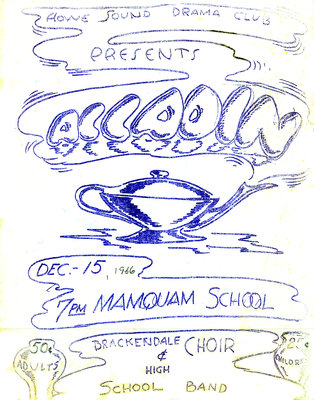 HOWE SOUND DRAMA CLUB
PRESENTS
ALLADIN
DEC.-15, 1966
7PM MAMQUAM SCHOOL
50¢
ADULTS
BRACKENDALE CHOIR
&
HIGH
SCHOOL BAND
25¢
CHILDREN